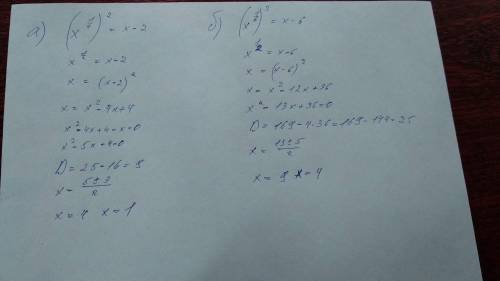 а) (x^{1/4})^2 = x-2
x^{1/2} = x-2
x = (x-2)^2
x = x^2-4x+4
x^2-4x+4-x=0
x^2-5x+4=0
D = 25-16=9
x = \frac{5±3}{2}
x=4 x=1
б) (x^{1/4})^2 = x-6
x^{1/2} = x-6
x = (x-6)^2
x = x^2-12x+36
x^2-13x+36=0
D = 169-4·36=169-144=25
x = \frac{13±5}{2}
x=9 x=4